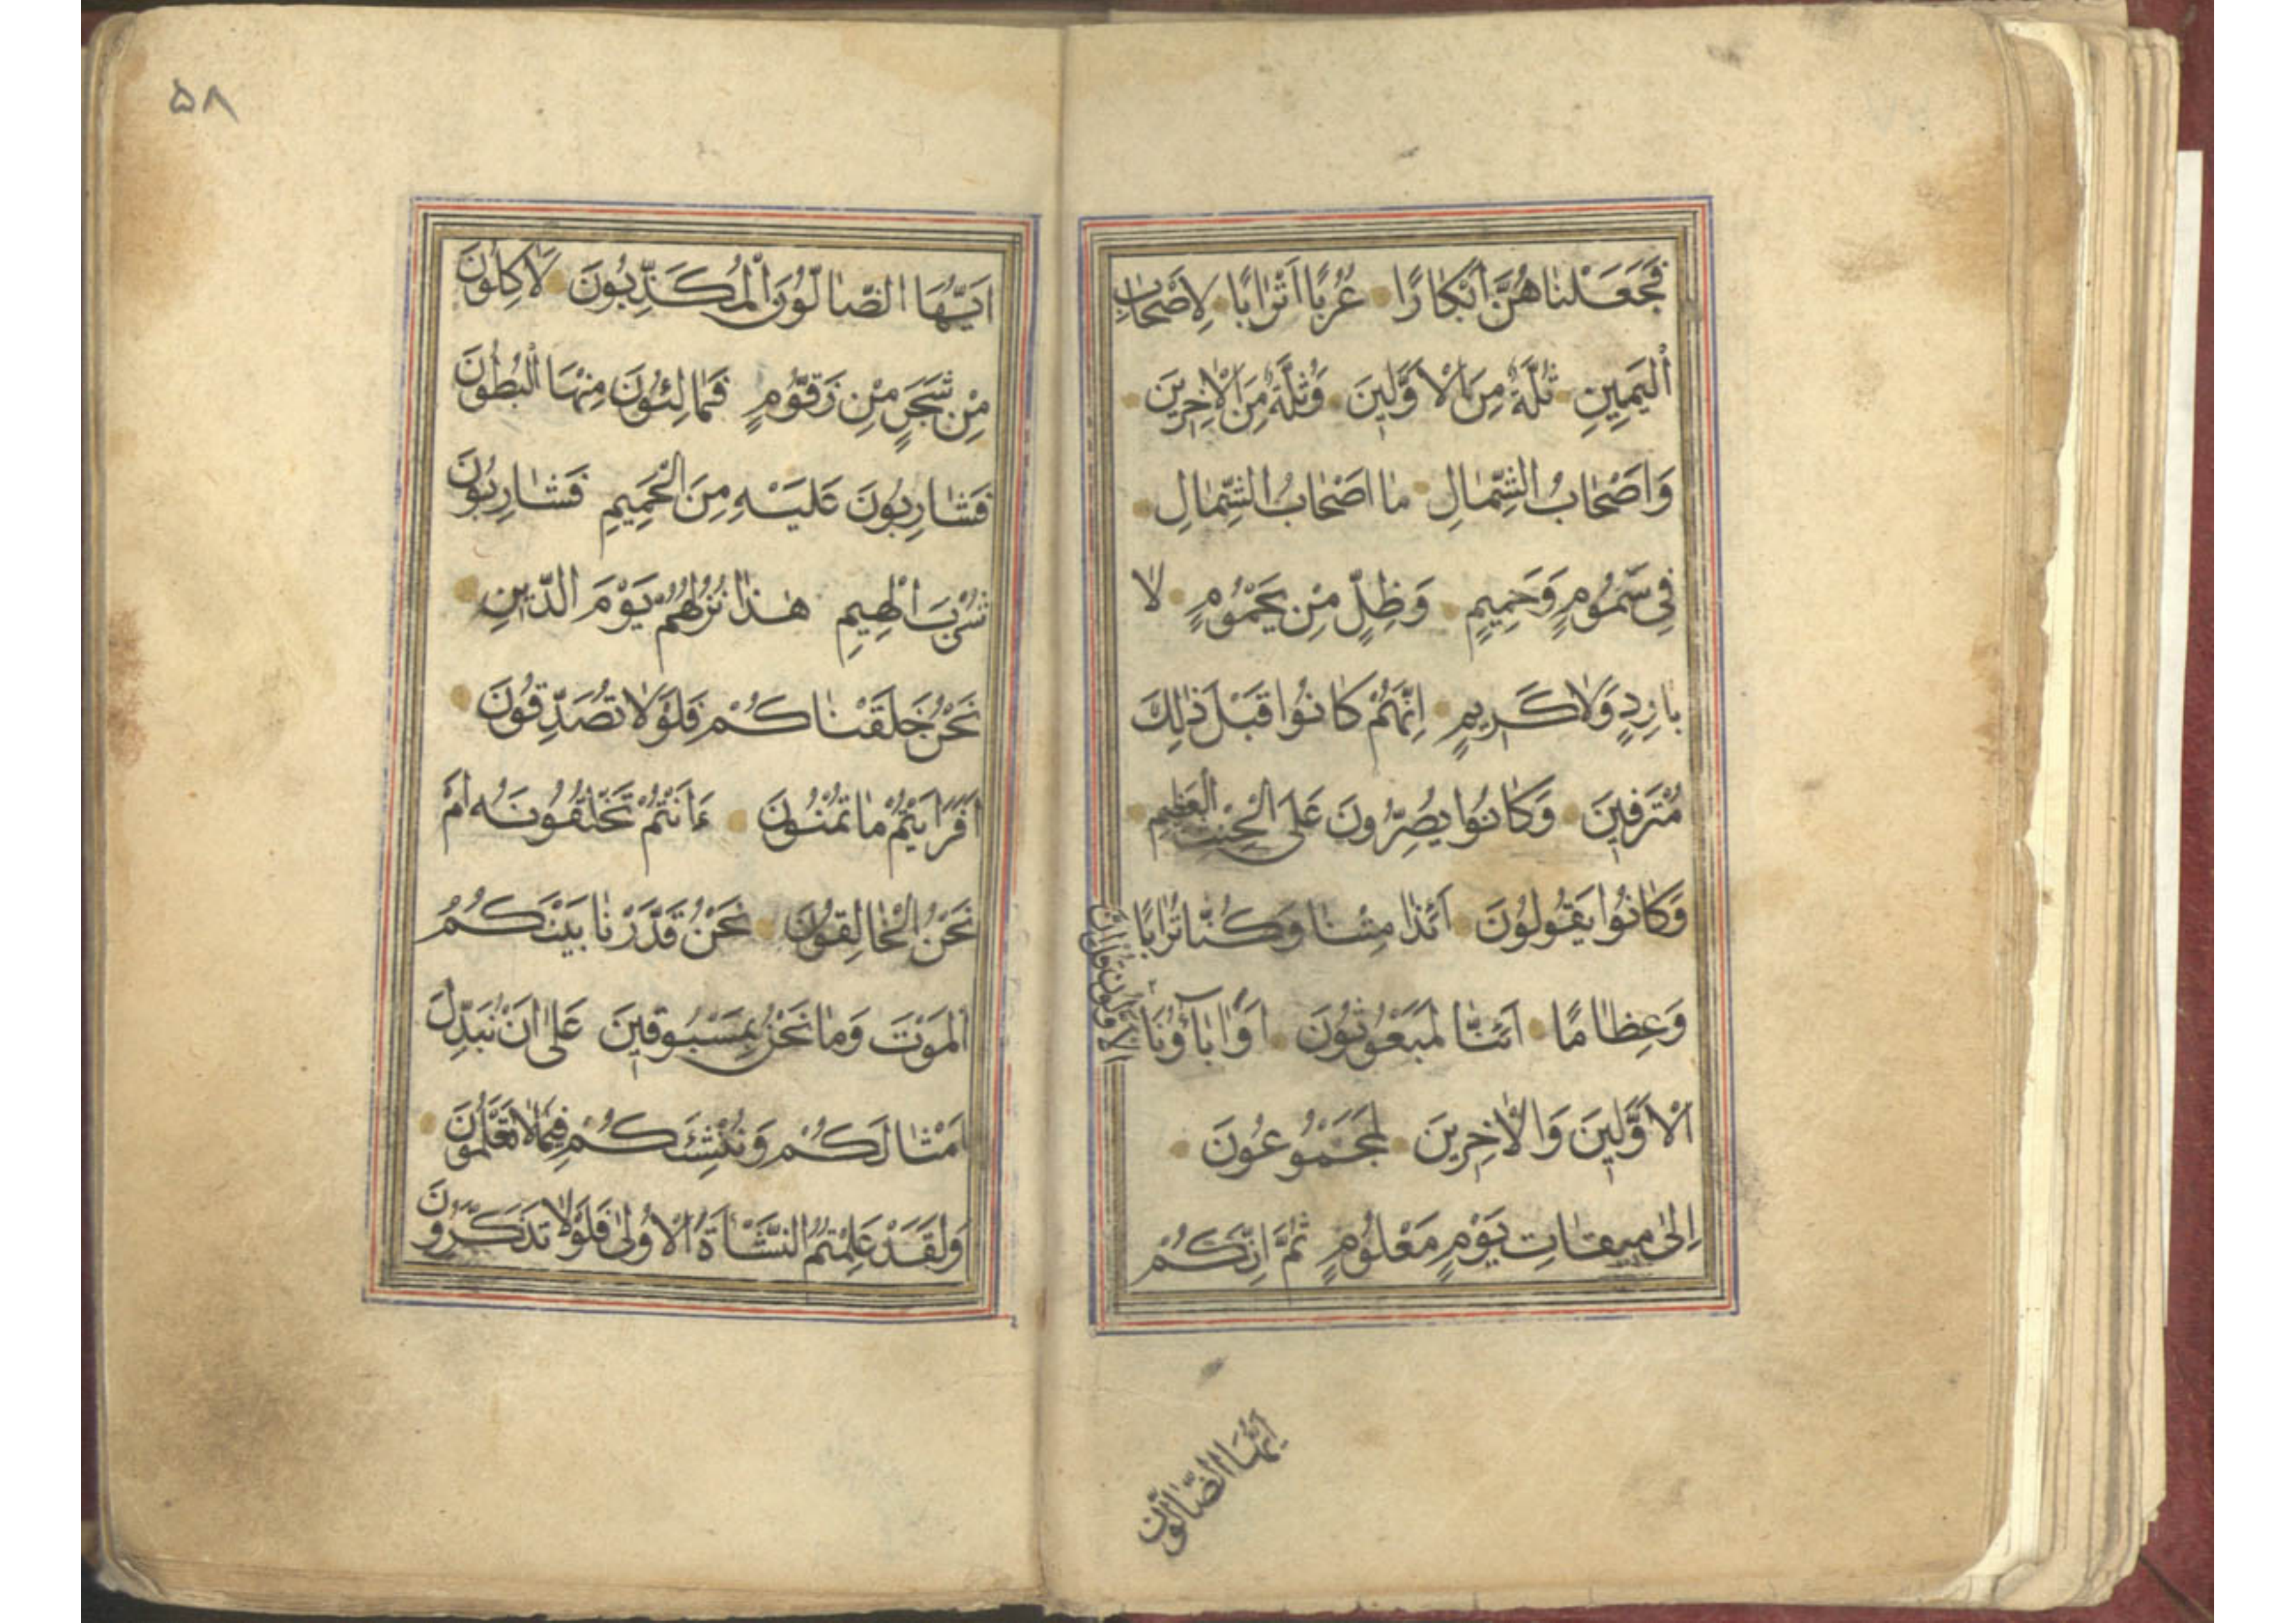 فَجَعَلْنَاهُنَّ أَبْكَارًا عُرُبًا اَتْرَابًا لِاَصْحَابِ
الْيَمِينِ ثُلَّةٌ مِنَ الْاَوَّلِينَ وَثُلَّةٌ مِنَ الْاٰخِرِينَ
وَاَصْحَابُ الشِّمَالِ مَا اَصْحَابُ الشِّمَالِ
فِي سَمُومٍ وَحَمِيمٍ وَظِلٍّ مِنْ يَحْمُومٍ لَا
بَارِدٍ وَلَا كَرِيمٍ اِنَّهُمْ كَانُوا قَبْلَ ذٰلِكَ
مُتْرَفِينَ وَكَانُوا يُصِرُّونَ عَلَى الْحِنْثِ الْعَظِيمِ
وَكَانُوا يَقُولُونَ اَئِذَا مِتْنَا وَكُنَّا تُرَابًا
وَعِظَامًا اَئِنَّا لَمَبْعُوثُونَ اَوَاٰبَآؤُنَا
الْاَوَّلُونَ قُلْ اِنَّ
الْاَوَّلِينَ وَالْاٰخِرِينَ لَمَجْمُوعُونَ
اِلٰى مِيقَاتِ يَوْمٍ مَعْلُومٍ ثُمَّ اِنَّكُمْ
اَيُّهَا الضَّالُّونَ
۵۸
اَيُّهَا الضَّالُّونَ الْمُكَذِّبُونَ لَاٰكِلُونَ
مِنْ شَجَرٍ مِنْ زَقُّومٍ فَمَالِئُونَ مِنْهَا الْبُطُونَ
فَشَارِبُونَ عَلَيْهِ مِنَ الْحَمِيمِ فَشَارِبُونَ
شُرْبَ الْهِيمِ هٰذَا نُزُلُهُمْ يَوْمَ الدِّينِ
نَحْنُ خَلَقْنَاكُمْ فَلَوْلَا تُصَدِّقُونَ
اَفَرَاَيْتُمْ مَا تُمْنُونَ ءَاَنْتُمْ تَخْلُقُونَهُ اَمْ
نَحْنُ الْخَالِقُونَ نَحْنُ قَدَّرْنَا بَيْنَكُمُ
الْمَوْتَ وَمَا نَحْنُ بِمَسْبُوقِينَ عَلٰى اَنْ نُبَدِّلَ
اَمْثَالَكُمْ وَنُنْشِئَكُمْ فِيمَا لَا تَعْلَمُونَ
وَلَقَدْ عَلِمْتُمُ النَّشْاَةَ الْاُولٰى فَلَوْلَا تَذَكَّرُونَ